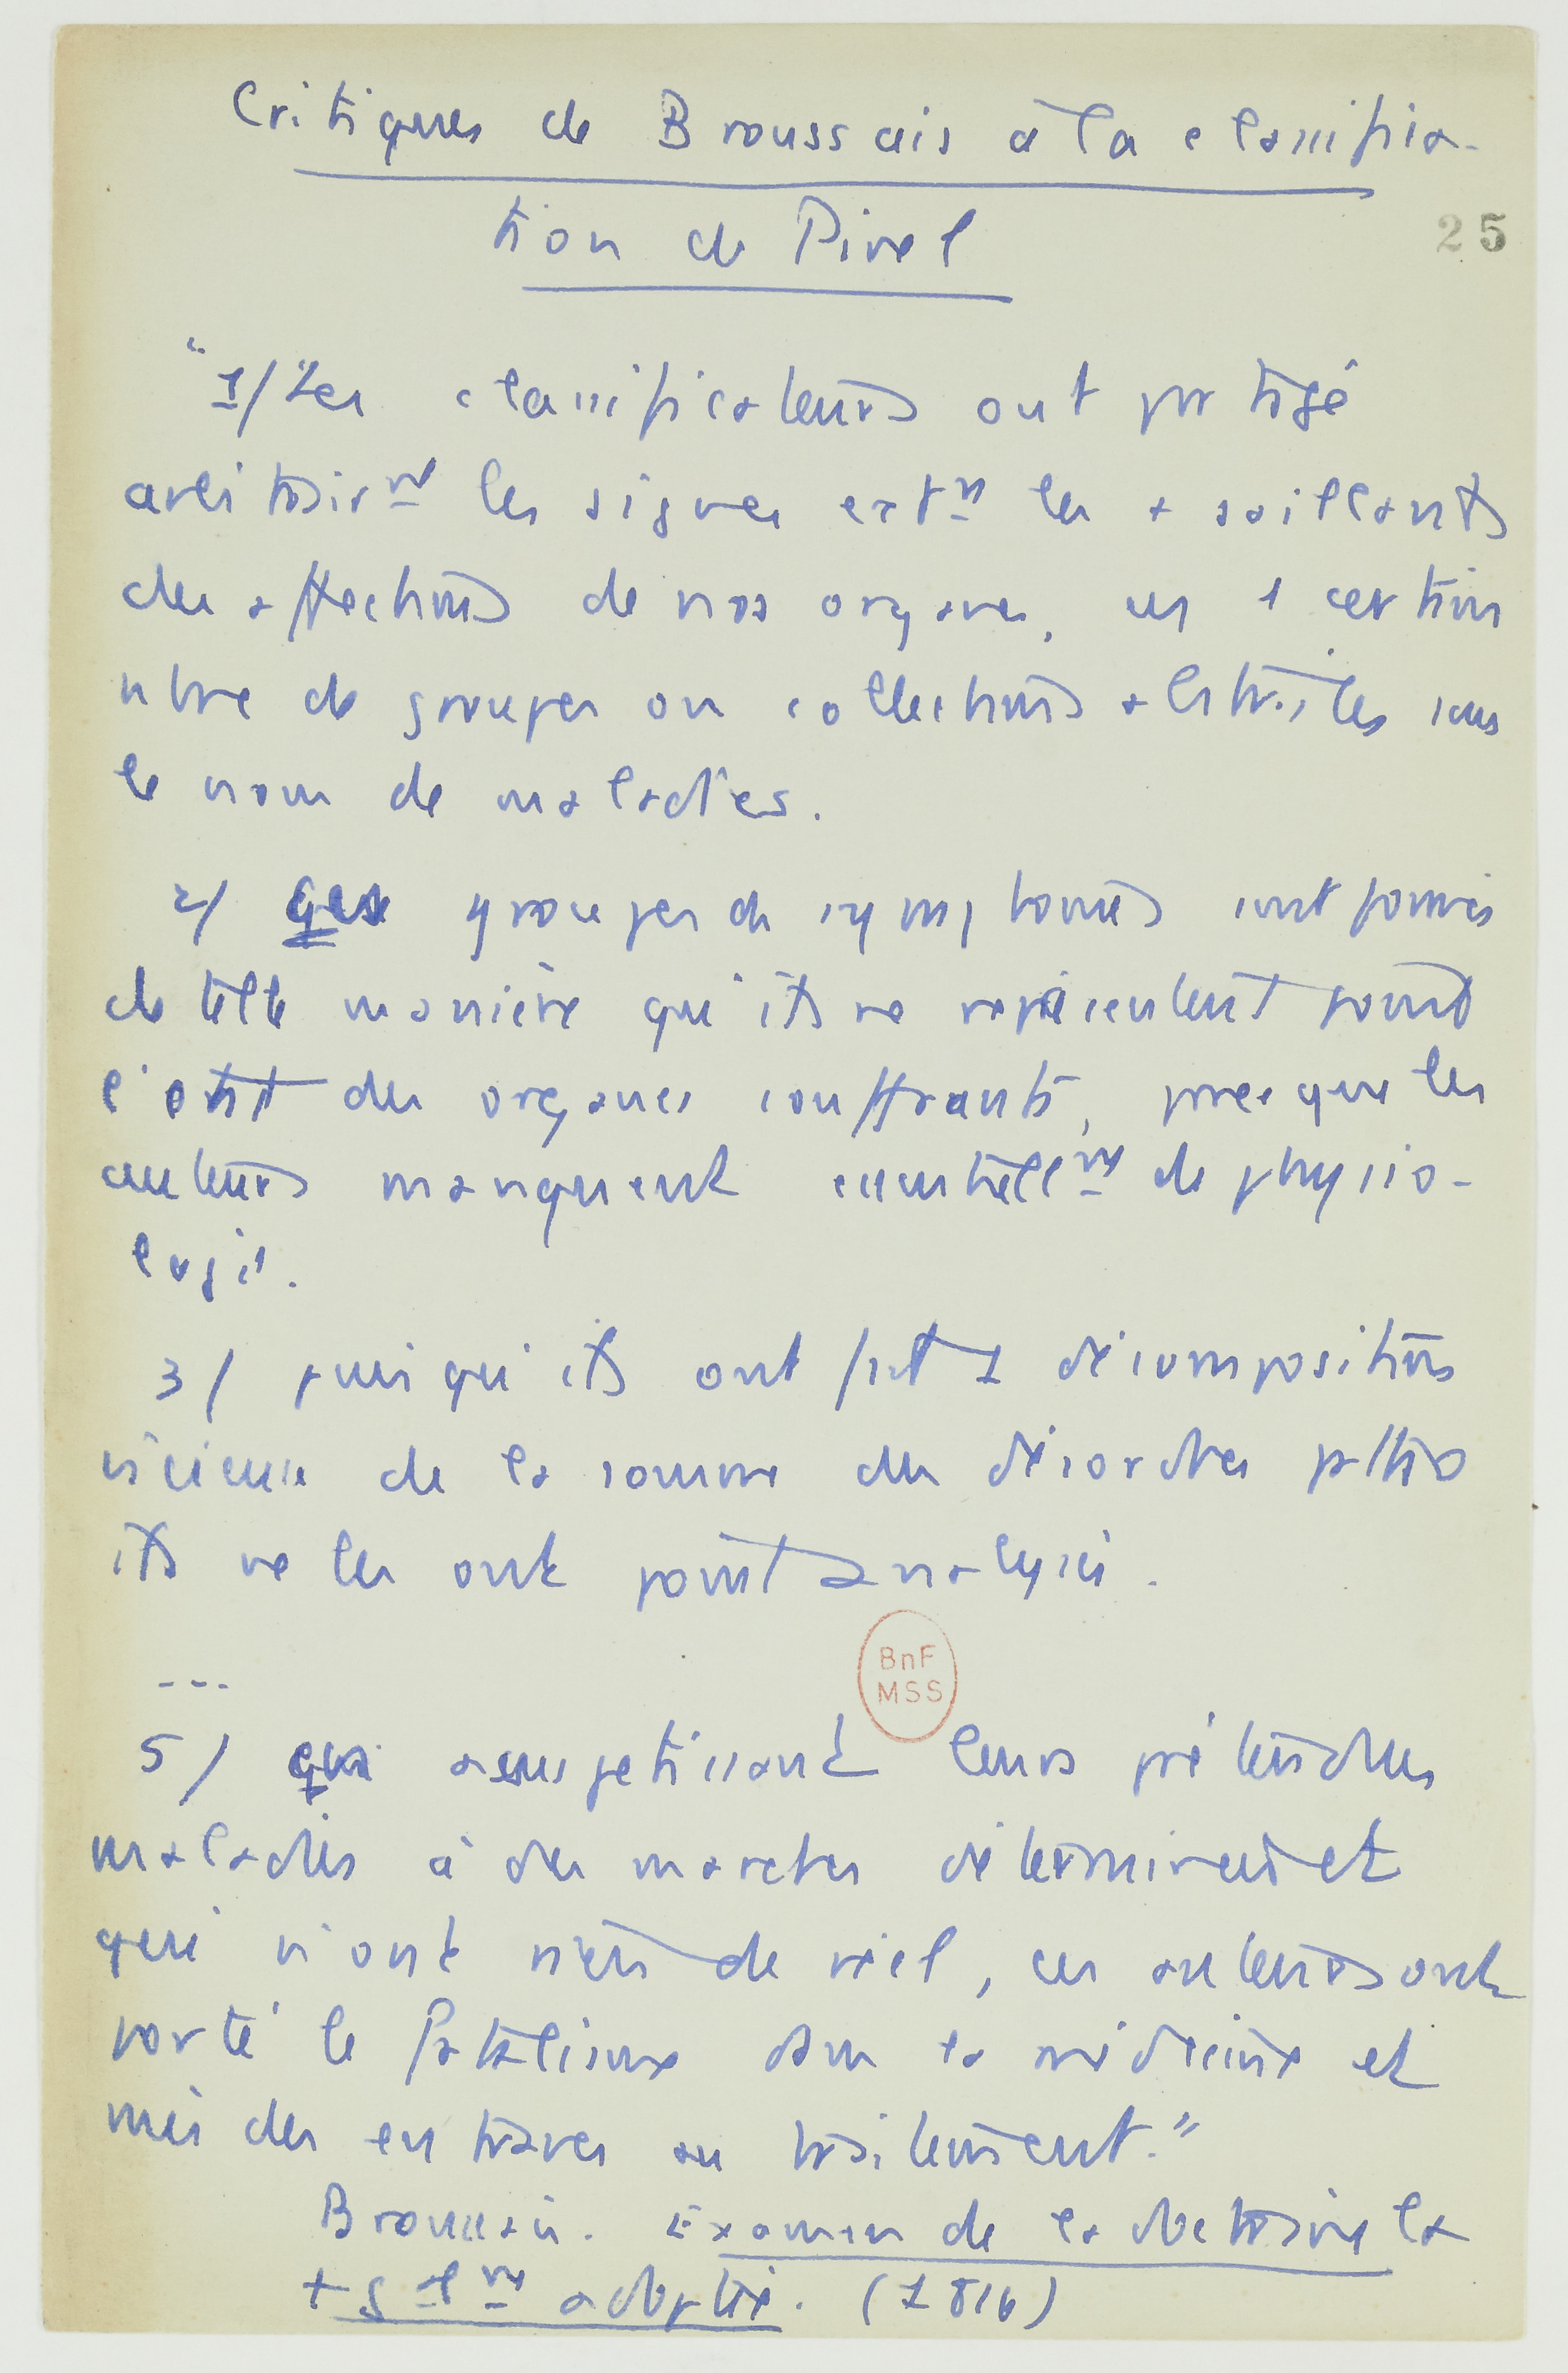 Critiques de Broussais à la classifica-
tion de Pinel
25
"1/ Les classificateurs ont partagé
arbitrairᵐᵗ les signes extʳˢ les + saillants
des affections de nos organes, en 1 certain
nbre de groupes ou collections abstraites sous
le nom de maladies.
2/ ces groupes de symptômes sont formés
de telle manière qu'ils ne représentent point
l'état des organes souffrants, parce que les
auteurs manquent essentiellᵐᵗ de physio-
logie.
3/ puisqu'ils ont fait 1 décomposition
vicieuse de la somme des désordres
ils ne les ont point analysés.
---
5/ assujetissant leurs prétendues
maladies à des marches déterminées et
qui n'ont rien de réel, ces auteurs ont
porté le fatalisme dans la médecine et
mis des entraves au traitement."
Broussais. Examen de la doctrine la
+ gᵃˡᵐᵗ adoptée. (1816)
BnF
MSS